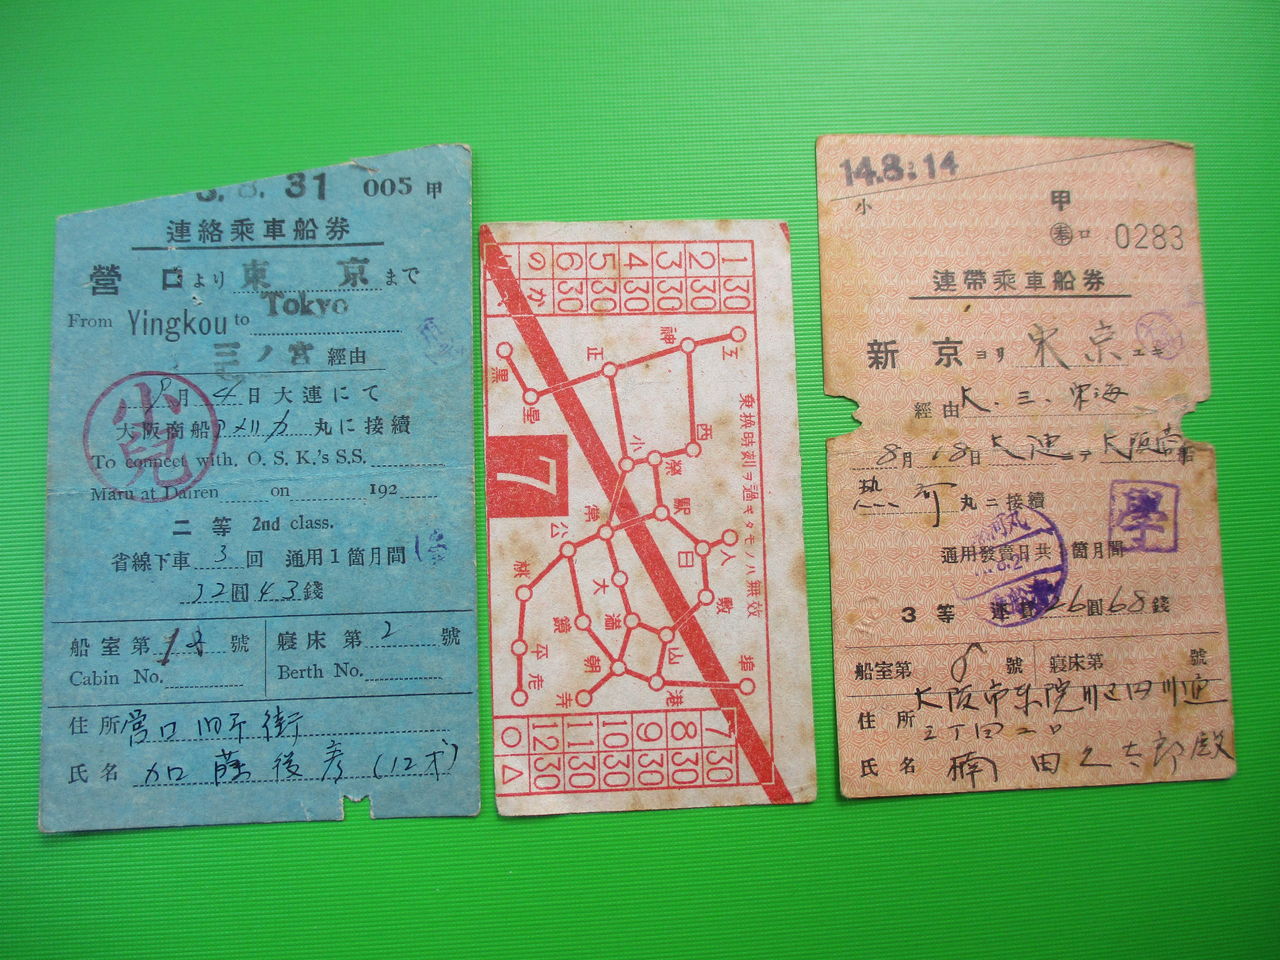 8. 31 005 甲
連絡乗車船券
營口より東京まで
From Yingkou to Tokyo
三ノ宮經由
月 4日大連にて
大阪商船アメリカ丸に接續
To connect with. O. S. K.'s S.S.
Maru at Dairen on 192
二等 2nd class.
省線下車3回 通用1箇月間
32圓43錢
小児
船室第 號
Cabin No.
寢床第2號
Berth No.
住所 營口旧市街
氏名 加藤後彦(12才)
1 30
2 30
3 30
4 30
5 30
6 30
の か
り へ
乗換時刻ヲ過ギタモノハ無效
工
神
正
黒
星
西
小
祭
駅
常
公
日
入
敷
大
満
山
桃
鏡
朝
平
老
寺
港
埠
7
7 30
8 30
9 30
10 30
11 30
12 30
○ △
14.8.14
小
甲
奉 口 0283
連帶乗車船券
新京ヨリ東京ユキ
經由大.三.東海
8月18日大連ニテ大阪商船
熱河丸ニ接續
通用發賣日共 箇月間
學
3等 運賃26圓68錢
船室第 號 寢床第 號
住所 大阪市東
三丁目
氏名 楠田久太郎殿